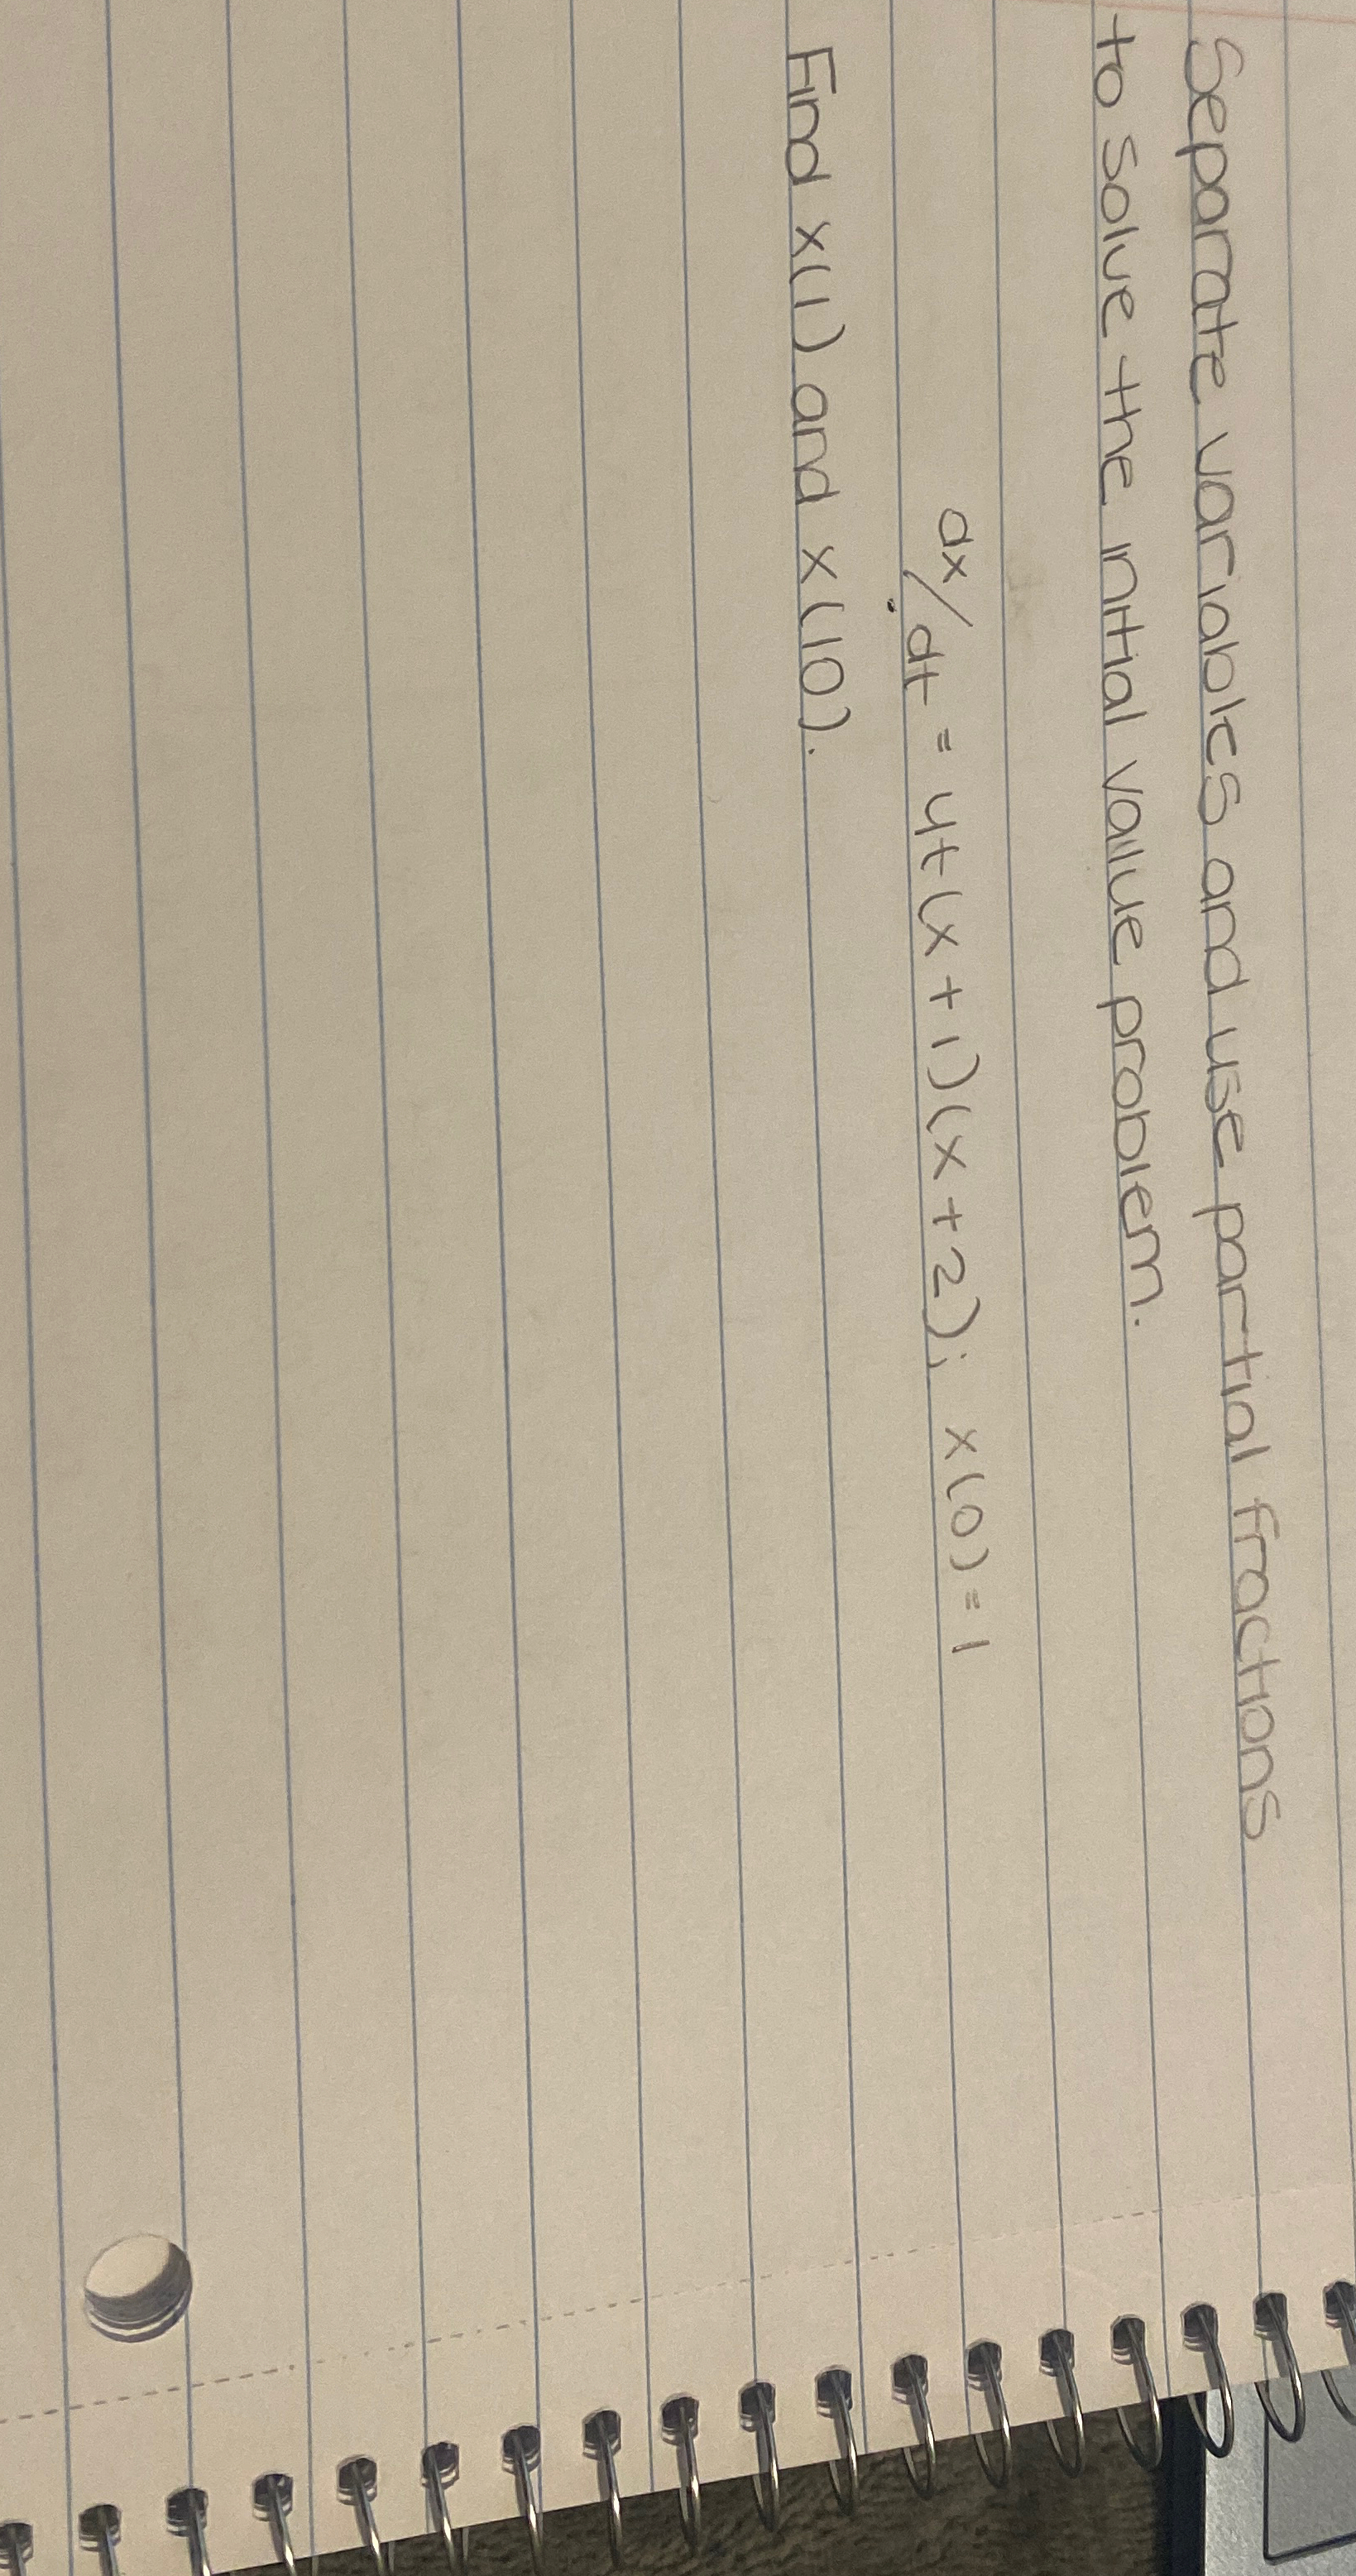 Separate variables and use partial fractions
to solve the initial value problem.
dx/dt = 4t(x+1)(x+2); x(0) = 1
Find x(1) and x(10).